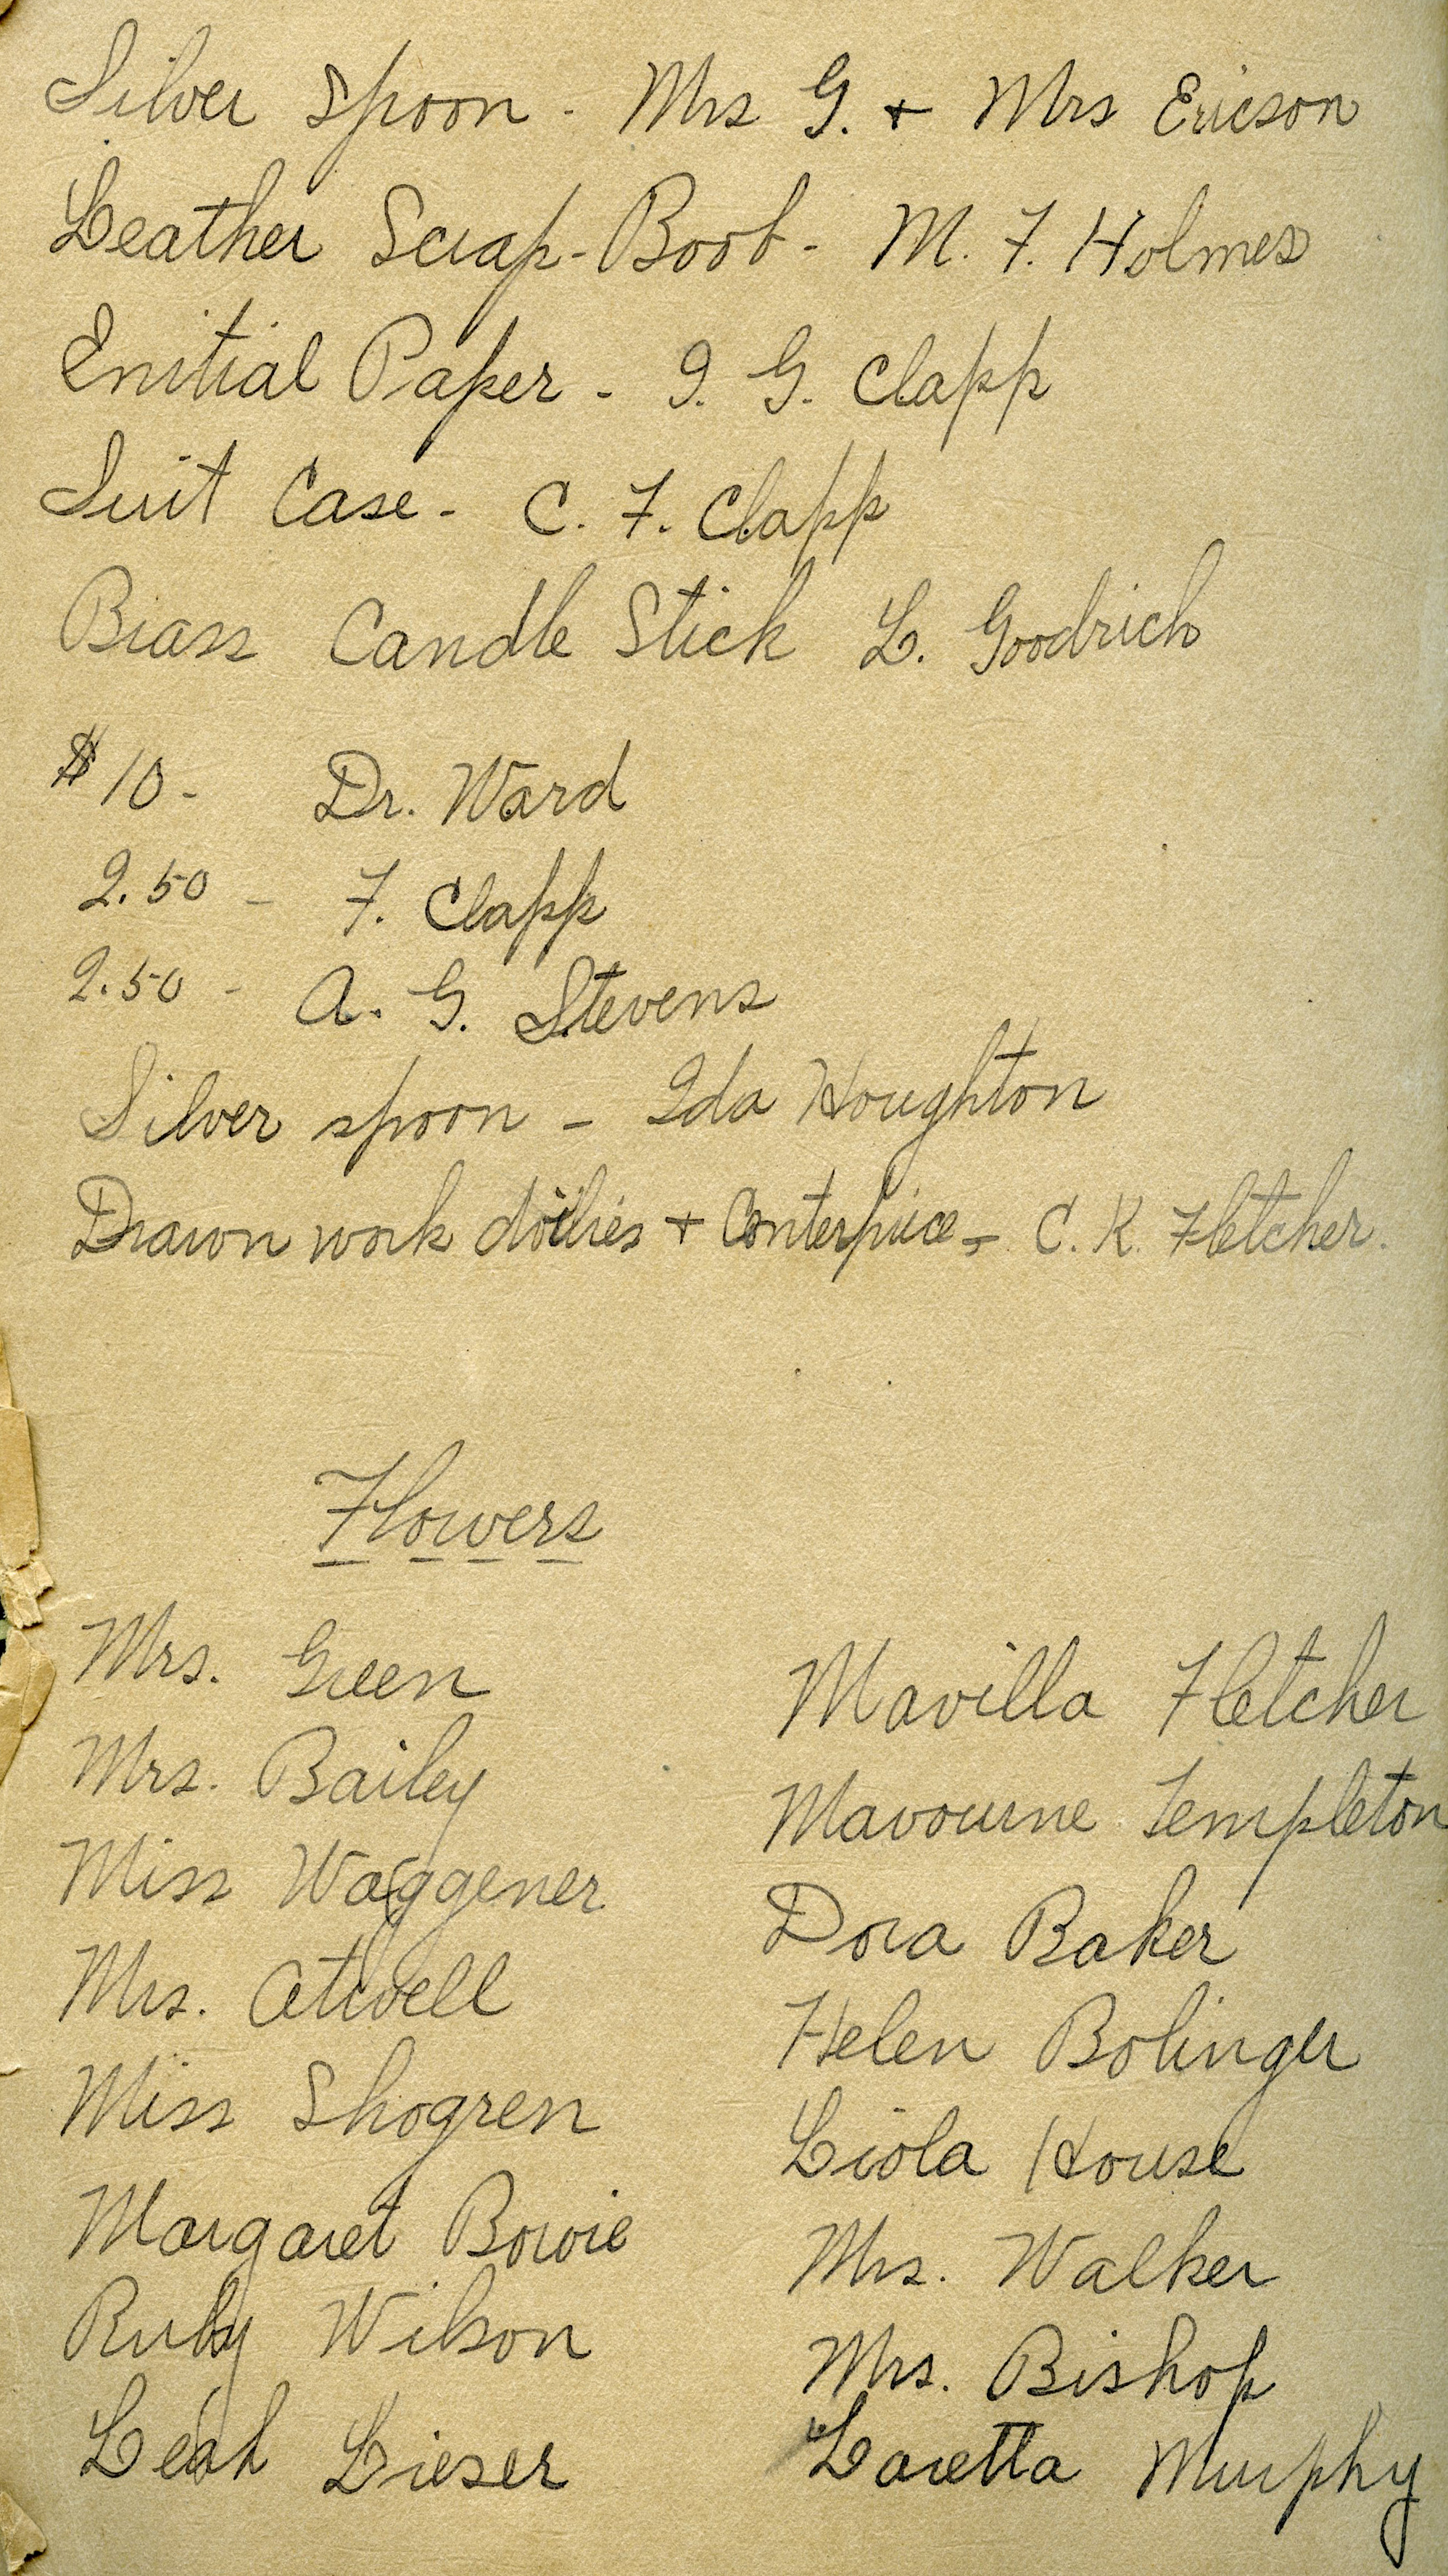 Silver spoon - Mrs G. + Mrs Ericson
Leather Scrap-Book - M. F. Holmes
Enitial Paper - I. G. Clapp
Suit Case - C. F. Clapp
Brass Candle Stick L. Goodrich
$10 - Dr. Ward
2.50 - F. Clapp
2.50 - A. G. Stevens
Silver spoon - Ida Houghton
Drawn work doilies + Centerpiece - C. K. Fletcher.
Flowers
Mrs. Green
Mrs. Bailey
Miss Waggener
Mrs. Atwell
Miss Shogren
Margaret Bowie
Ruby Wilson
Leah Lieser
Mavilla Fletcher
Mavourne Templeton
Dora Baker
Helen Bolinger
Liola House
Mrs. Walker
Mrs. Bishop
Loretta Murphy